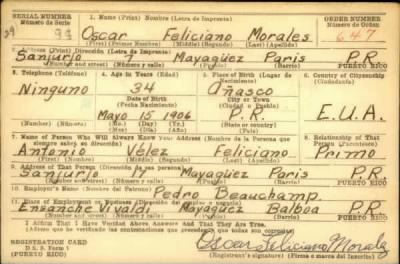 SERIAL NUMBER
Número de Serie
1. Name (Print) Nombre (Letra de Imprenta)
ORDER NUMBER
Número de Orden
Oscar Feliciano Morales
647
(First) (Primer Nombre) (Middle) (Segundo) (Last) (Apellido)
2. Address (Print) Dirección (Letra de Imprenta)
Sanjurjo 7 Mayagüez Paris P.R.
(Number and street) (Número y calle) (Barrio) PUERTO RICO
3. Telephone (Teléfono)
4. Age in Years (Edad)
5. Place of Birth (Lugar de Nacimiento)
6. Country of Citizenship
(Ciudadanía)
Ninguno 34 Añasco
Date of Birth
Fecha de Nacimiento
City or Town
(Ciudad o Pueblo)
Mayo 15 1906 P.R. E.U.A.
(Number) (Número) (Mo.) (Day) (Yr.)
(Mes) (Día) (Año)
7. Name of Person Who Will Always Know Your Address (Nombre de la Persona que siempre sabrá su dirección)
8. Relationship of That Person (Parentesco)
Antonio Vélez Feliciano Primo
(First) (Nombre) (Middle) (Segundo) (Last) (Apellido)
9. Address of That Person (Dirección de esa persona)
Sanjurjo Mayagüez Paris P.R.
(Number and street) (Número y calle) (Barrio) PUERTO RICO
10. Employer's Name (Nombre del Patrono)
Pedro Beauchamp.
11. Place of Employment or Business
Ensanche Vivaldi Mayagüez Balboa P.R.
(Number and street) (Número y calle) (Barrio) PUERTO RICO
I Affirm That I Have Verified Above Answers and That They Are True.
(Afirmo que he verificado las contestaciones que preceden y que todas son correctas)
REGISTRATION CARD
D. S. S. Form 1
(Patrón de Registro)
Oscar Feliciano Morales
(Registrant's signature) (Firma o marca del inscrito)